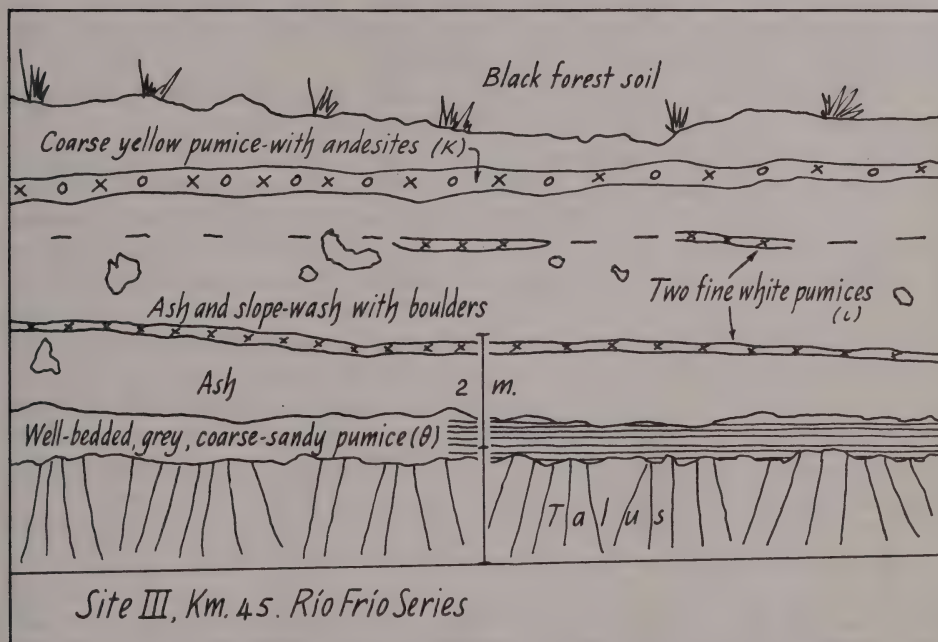 Black forest soil
Coarse yellow pumice-with andesites (K)
Two fine white pumices
(ι)
Ash and slope-wash with boulders
Ash
2 m.
Well-bedded, grey, coarse-sandy pumice (θ)
Talus
Site III, Km. 45. Río Frío Series